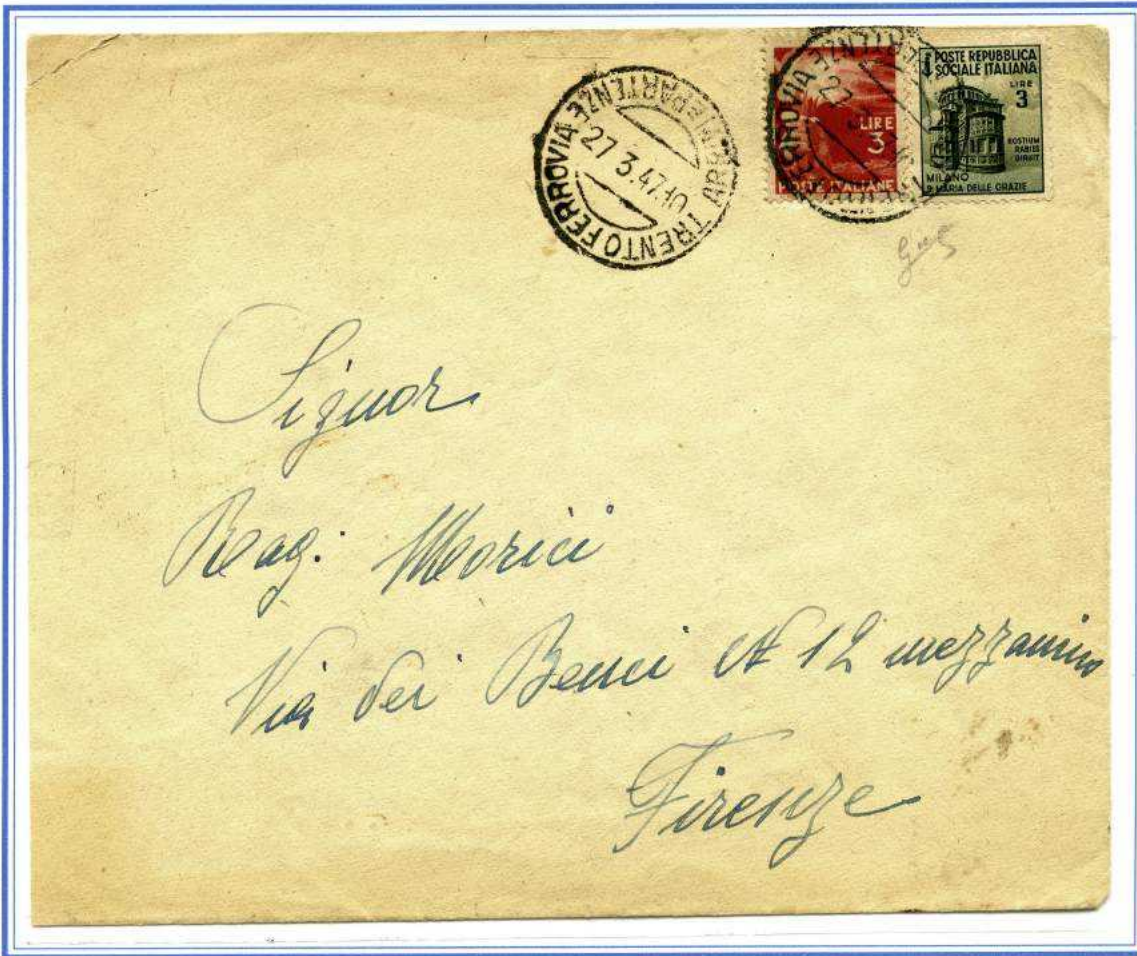 TRENTO FERROVIA ARRIVI E PARTENZE
27 3.47.10
LIRE
3
POSTE ITALIANE
FERROVIA
27
POSTE REPUBBLICA
SOCIALE ITALIANA
LIRE
3
HOSTIUM
RABIES
DIRUIT
MILANO
S. MARIA DELLE GRAZIE
Signor
Rag. Morici
Via dei Benci N 12 mezzanino
Firenze